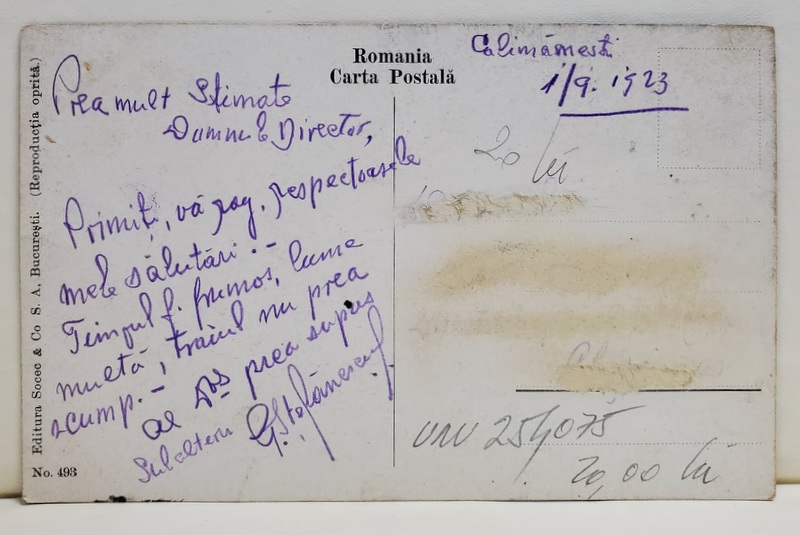 Romania
Carta Postală
Calimănesti
1/9. 1923
Prea mult Stimate
Domnule Director,
Primiți, vă rog, respectoasele
mele sălutări.-
Timpul f. frumos, lume
multă, traiul nu prea
scump.-
al Dvs prea supus
Subaltern G. Ștefănescu
20 lei
UNU 254075
20,00 lei
Editura Socec & Co S. A, București. (Reproducția oprită.)
No. 493